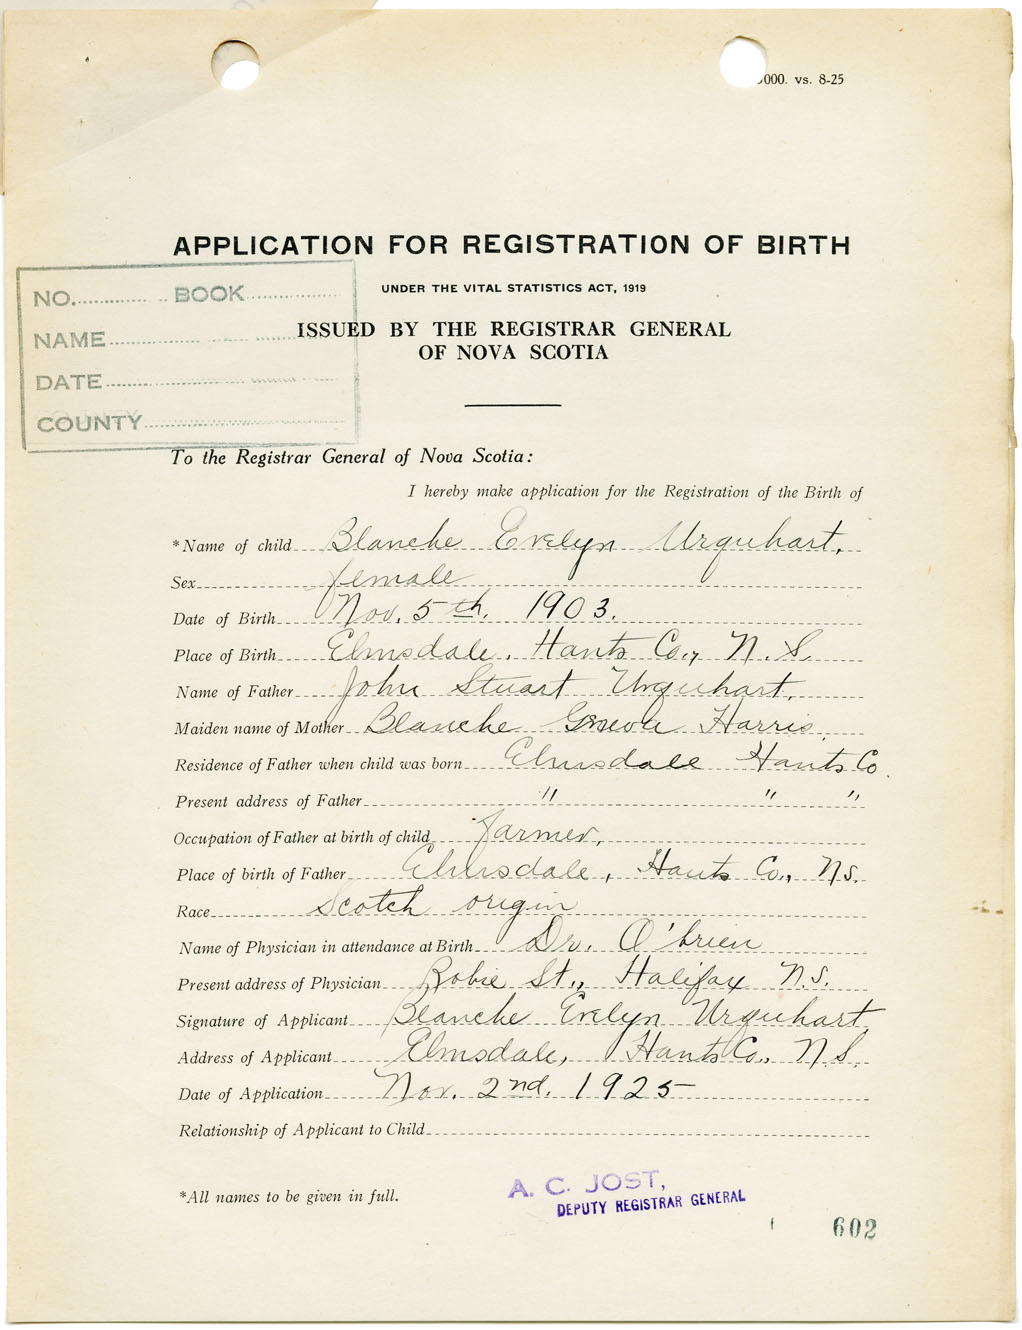 000. vs. 8-25
APPLICATION FOR REGISTRATION OF BIRTH
UNDER THE VITAL STATISTICS ACT, 1919
ISSUED BY THE REGISTRAR GENERAL
OF NOVA SCOTIA
NO. BOOK
NAME
DATE
COUNTY
To the Registrar General of Nova Scotia:
I hereby make application for the Registration of the Birth of
*Name of child Blanche Evelyn Urquhart.
Sex female
Date of Birth Nov. 5th. 1903.
Place of Birth Elmsdale, Hants Co., N.S.
Name of Father John Stuart Urquhart.
Maiden name of Mother Blanche Geneva Harris.
Residence of Father when child was born Elmsdale Hants Co.
Present address of Father " " "
Occupation of Father at birth of child farmer,
Place of birth of Father Elmsdale, Hants Co., N.S.
Race Scotch origin
Name of Physician in attendance at Birth Dr. O'brien
Present address of Physician Robie St., Halifax N.S.
Signature of Applicant Blanche Evelyn Urquhart.
Address of Applicant Elmsdale, Hants Co., N.S.
Date of Application Nov. 2nd. 1925
Relationship of Applicant to Child
*All names to be given in full.
A. C. JOST,
DEPUTY REGISTRAR GENERAL
602